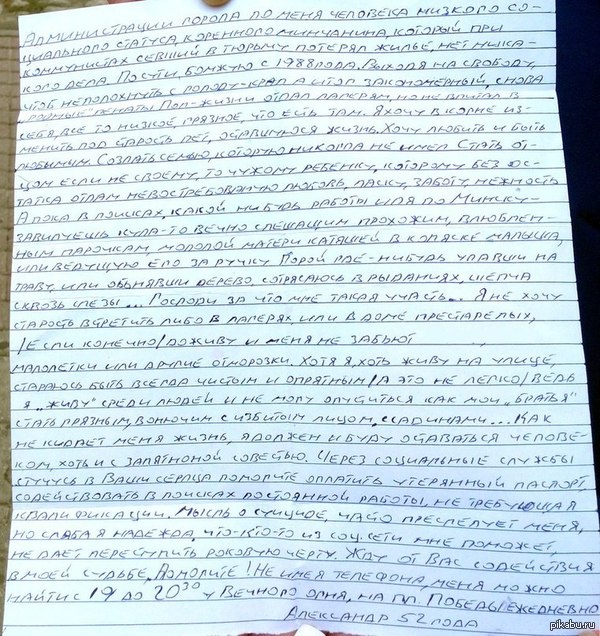 Администрации города до меня человека низкого со-
циального статуса, коренного минчанина, который при
коммунистах севший в тюрьму потерял жильё, нет ника-
кого дела. Почти, бомжую с 1988 года. Выходя на свободу,
чтоб не подохнуть с голоду-крал а итог закономерный, снова
"родные" пенаты Пол-жизни отдал лагерям, но не впитал в
себя, всё то низкое, грязное, что есть там. Я хочу в корне из-
менить под старость лет, оставшуюся жизнь. Хочу любить и быть
любимым. Создать семью, которую никогда не имел Стать от-
цом если не своему, то чужому ребёнку, которому без ос-
татка отдам невостребованную любовь, ласку, заботу, нежность
А пока в поисках, какой нибудь работы идя по Минску-
завидуешь куда-то вечно спешащим прохожим, влюблен-
ным парочкам, молодой матери катящей в коляске малыша,
или ведущую его за ручку Порой где-нибудь упавши на
траву, или обнявши дерево, сотрясаюсь в рыданиях, шепча
сквозь слёзы... Господи за что мне такая участь... Я не хочу
старость встретить либо в лагерях или в доме престарелых,
/если конечно/доживу и меня не забьют
малолетки или другие отморозки. Хотя я, хоть живу на улице,
стараюсь быть всегда чистым и опрятным/а это не легко/ведь
я "живу" среди людей и не могу опуститься как мои "братья"
стать грязным, вонючим с избитым лицом, ссадинами... Как
не кидает меня жизнь, я должен и буду оставаться челове-
ком, хоть и с запятноной совестью. Через социальные службы
стучусь в Ваши сердца помогите оплатить утерянный паспорт,
содействовать в поисках постоянной работы, не требующая
квалификации. Мысль о суициде, часто преследует меня,
но слабая надежда, что-кто-то из соц.сети мне поможет,
не даёт переступить роковую черту. Жду от Вас содействия
в моей судьбе. Помогите! Не имея телефона, меня можно
найти с 19 до 20 30 у Вечного огня, на пл. Победы ежедневно
Александр 52 года
pikabu.ru